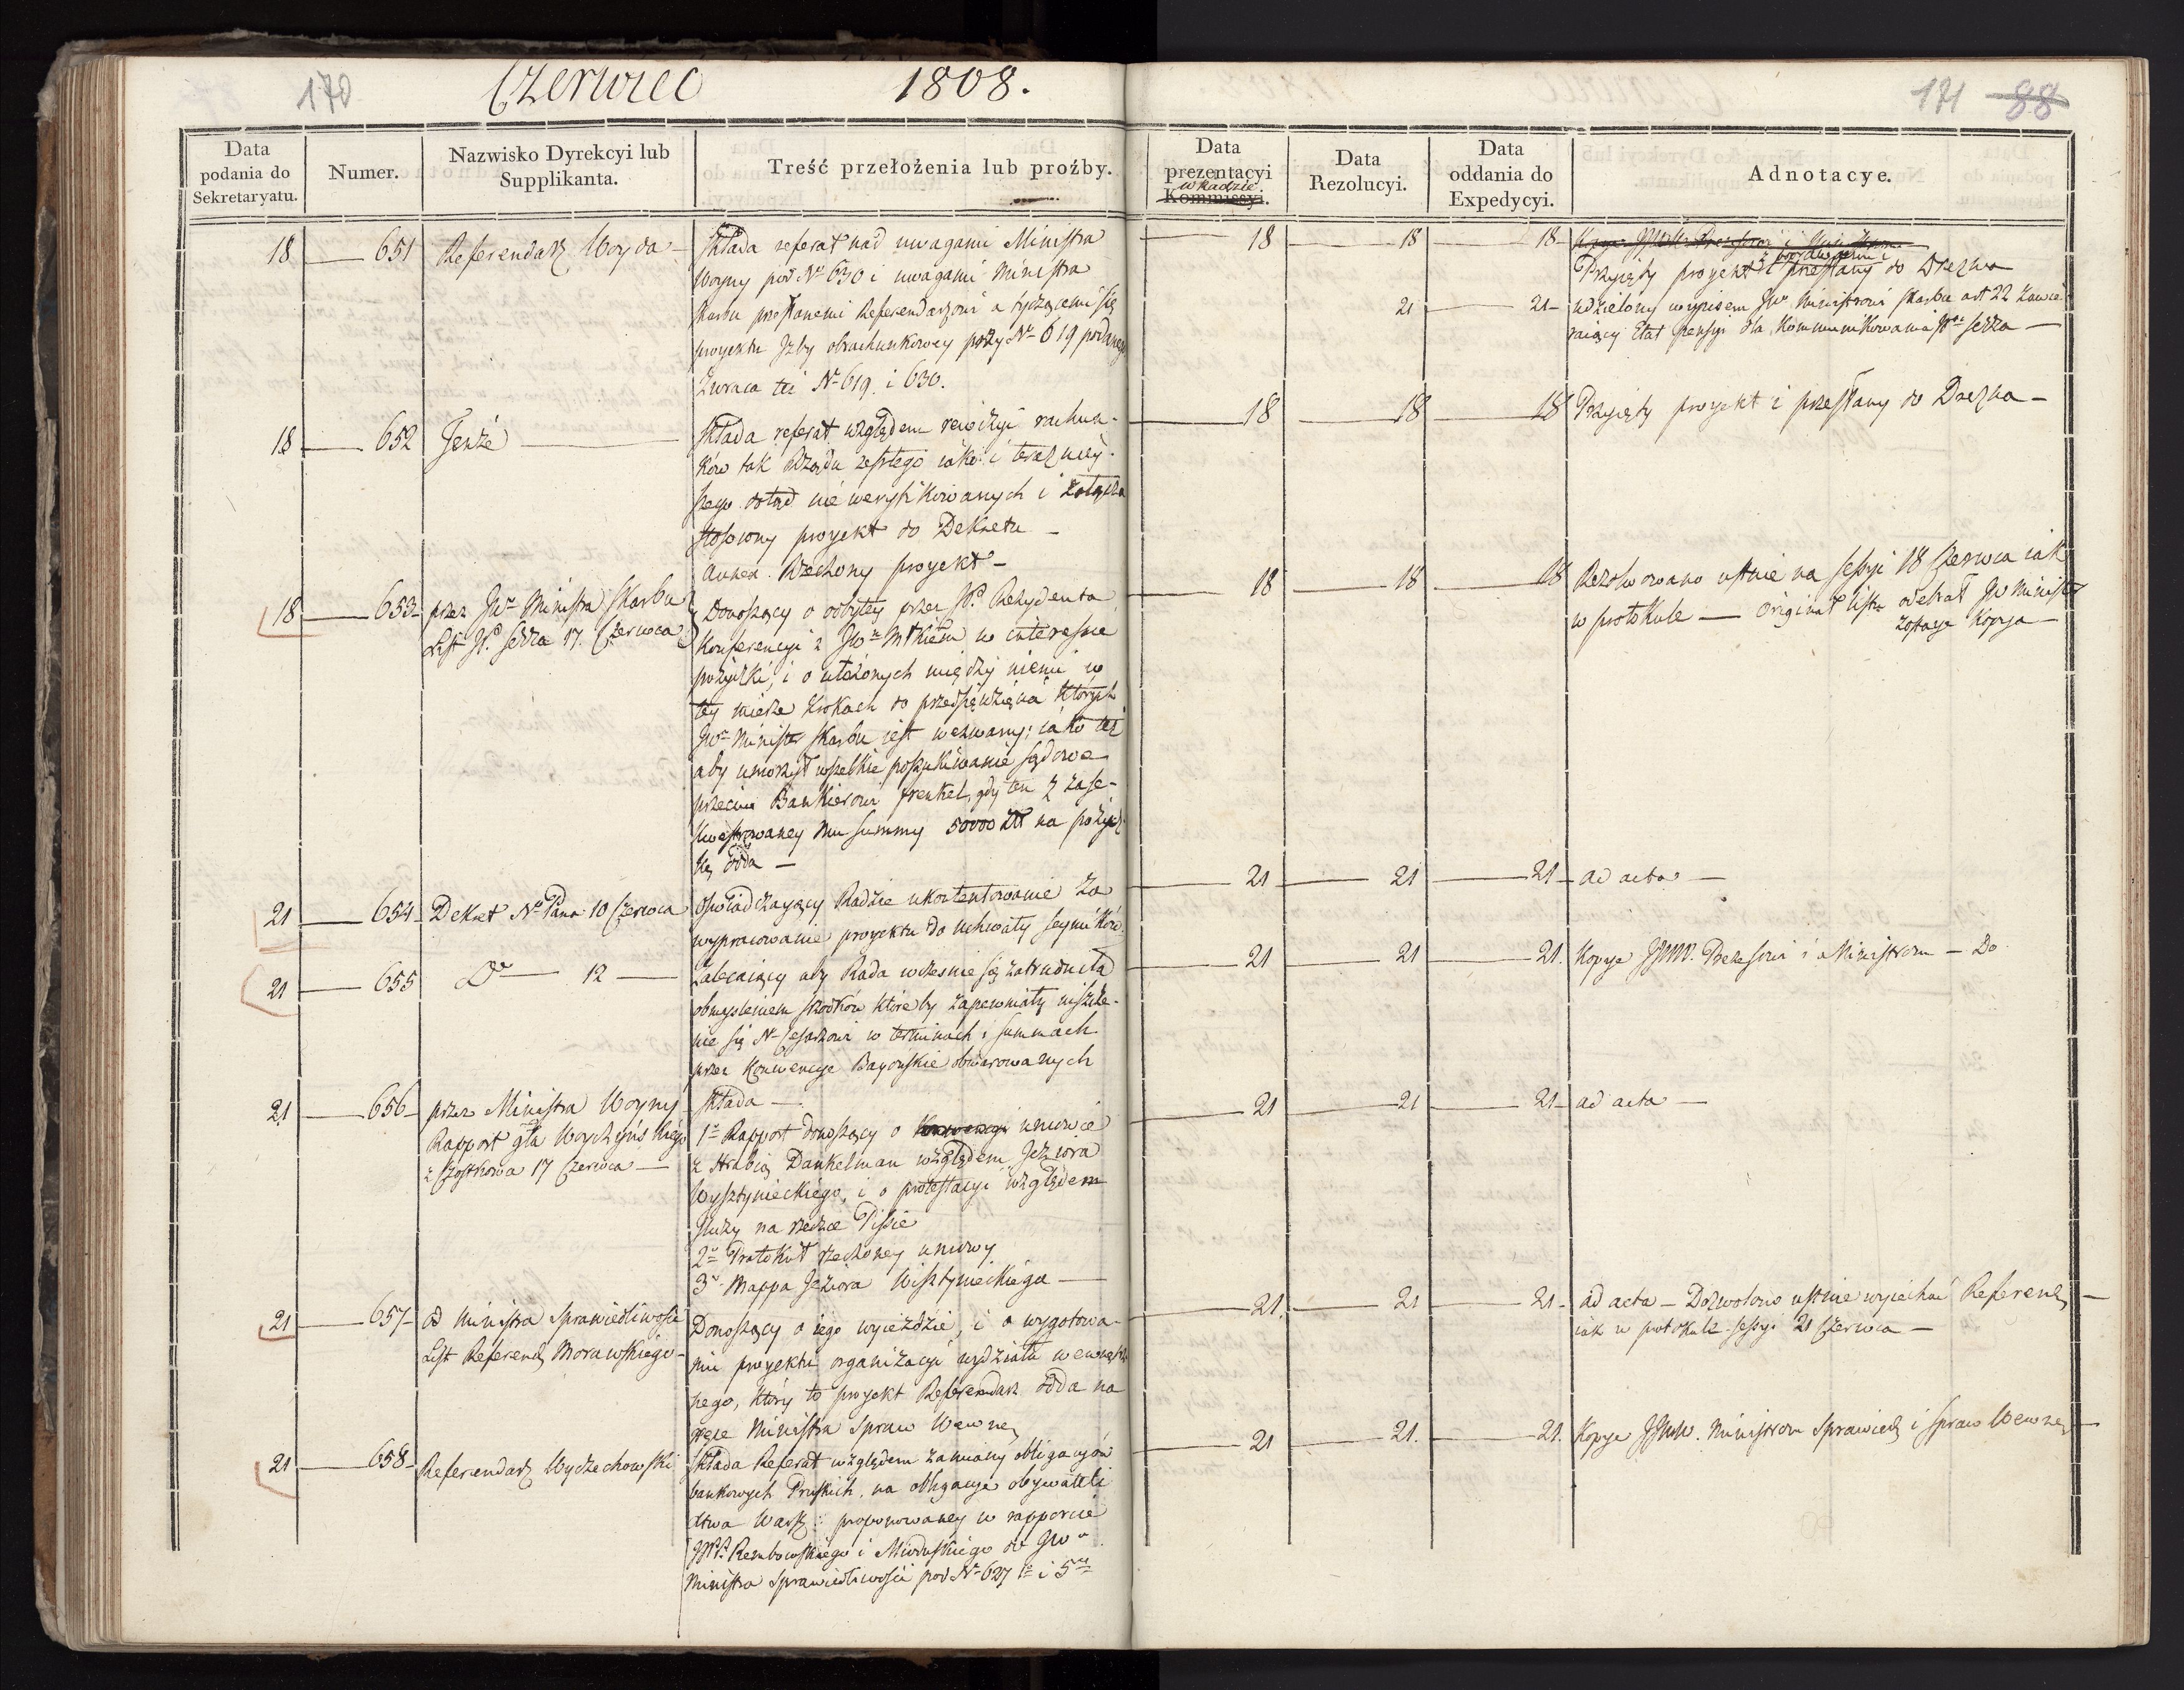 170
Czerwiec 1808.
171 88
Data podania do Sekretaryatu.
Numer.
Nazwisko Dyrekcyi lub Supplikanta.
Treść przełożenia lub proźby.
Data prezentacyi w Radzie. Kommissyi.
Data Rezolucyi.
Data oddania do Expedycyi.
Adnotacye.
18 — 651 Referendarz Woyda —
Składa referat nad uwagami Ministra
Woyny pod Nr 630 i uwagami Ministra
Skarbu przesłanemi Referendarzowi a tyczącemi się
proyektu Izby obrachunkowey przy Nr 619 podanego
Zwraca też Nr 619. i 630.
18 — 18 — 18 —
Przyięty proyekt i przesłany do Drezna
21 — 21 — udzielony wypisem JW Ministrowi Skarbu art 22 zawie
raiący Etat pensyi dla kommunikowania Serra —
18 — 652 Tenże —
Składa referat względem rewizyi rachun-
ków tak Rządu zeszłego iako i teraźniey-
szego dotąd nie weryfikowanych i załącza
stosowny proyekt do Dekretu —
Annex. Rzeczony proyekt —
18 — 18 — 18 Przyięty proyekt i przesłany do Drezna —
18 — 653 — przez JWo Ministra Skarbu
List JP. Serra 17. Czerwca
Donoszący o odbytey przez JP. Rezydenta
Konferencyi z JWo w interesie
pożyczki, i o ułożonych między niemi w
tey mierze krokach do przedsięwzięcia których
JWo Minister Skarbu iest wezwany; iako też
aby umorzył wszelkie poszukiwanie sądowe
przeciw Bankierowi Frenkel, gdy ten z zase-
kwestrowaney mu summy 50000 na pożycz-
kę odda —
18 — 18 — 18 Rezolwowano ustnie na sessyi 18 Czerwca iak
w protokule — Originał listu odebrał JW Minister
zostaje kopja —
21 — 654 — Dekret N. Pana 10 Czerwca
oświadczaiący Radzie ukontentowanie za
wypracowanie proyektu do uchwały seymików.
21 — 21 — 21 — ad acta —
21 — 655 Do — 12 —
Zalecaiący aby Rada wcześnie się zatrudniła
obmyśleniem srzodków któreby zapewniały uiszcze-
nie się N. Cesarzowi w terminach i summach
przez Konwencye Bayońskie obwarowanych
21 — 21 — 21. Kopje JJWW. Prezesowi i Ministrom — Do
21 — 656 — przez Ministra Woyny
Rapport gła Woyczyńskiego
z Czostkowa 17 Czerwca —
Składa —
1o Rapport donoszący o umowie
z Hrabią Dankelman względem Jeziora
Wysztynieckiego, i o protestacyi względem
śluzy na rzece Pisie
2o Protokuł rzeczoney umowy
3o Mappa Jeziora Wisztynieckiego —
21 — 21 — 21 — ad acta —
21 — 657 — od Ministra Sprawiedliwości
List Referend. Morawskiego —
Donoszący o iego wyieździe, i o wygotowa-
niu proyektu organizacyi wydziału wewnętrz
nego, który to proyekt Referendarz odda na
ręce Ministra Spraw Wewne.
21 — 21 — 21 — ad acta — Dozwolono ustnie wyiechać Referend. —
iak w protokule sessyi 21 Czerwca —
21 — 658 — Referendarz Wyczechowski
Składa Referat względem zamiany obligacyów
bankowych Pruskich, na obligacye obywatel
stwa Warsz: proponowaney w rapporcie
Rembowskiego i Mioduskiego do JWo
Ministra Sprawiedliwości pod Nr 627 1o i 5to
21 — 21. — 21. Kopje JJWW. Ministrom Sprawied. i Spraw Wewne. —